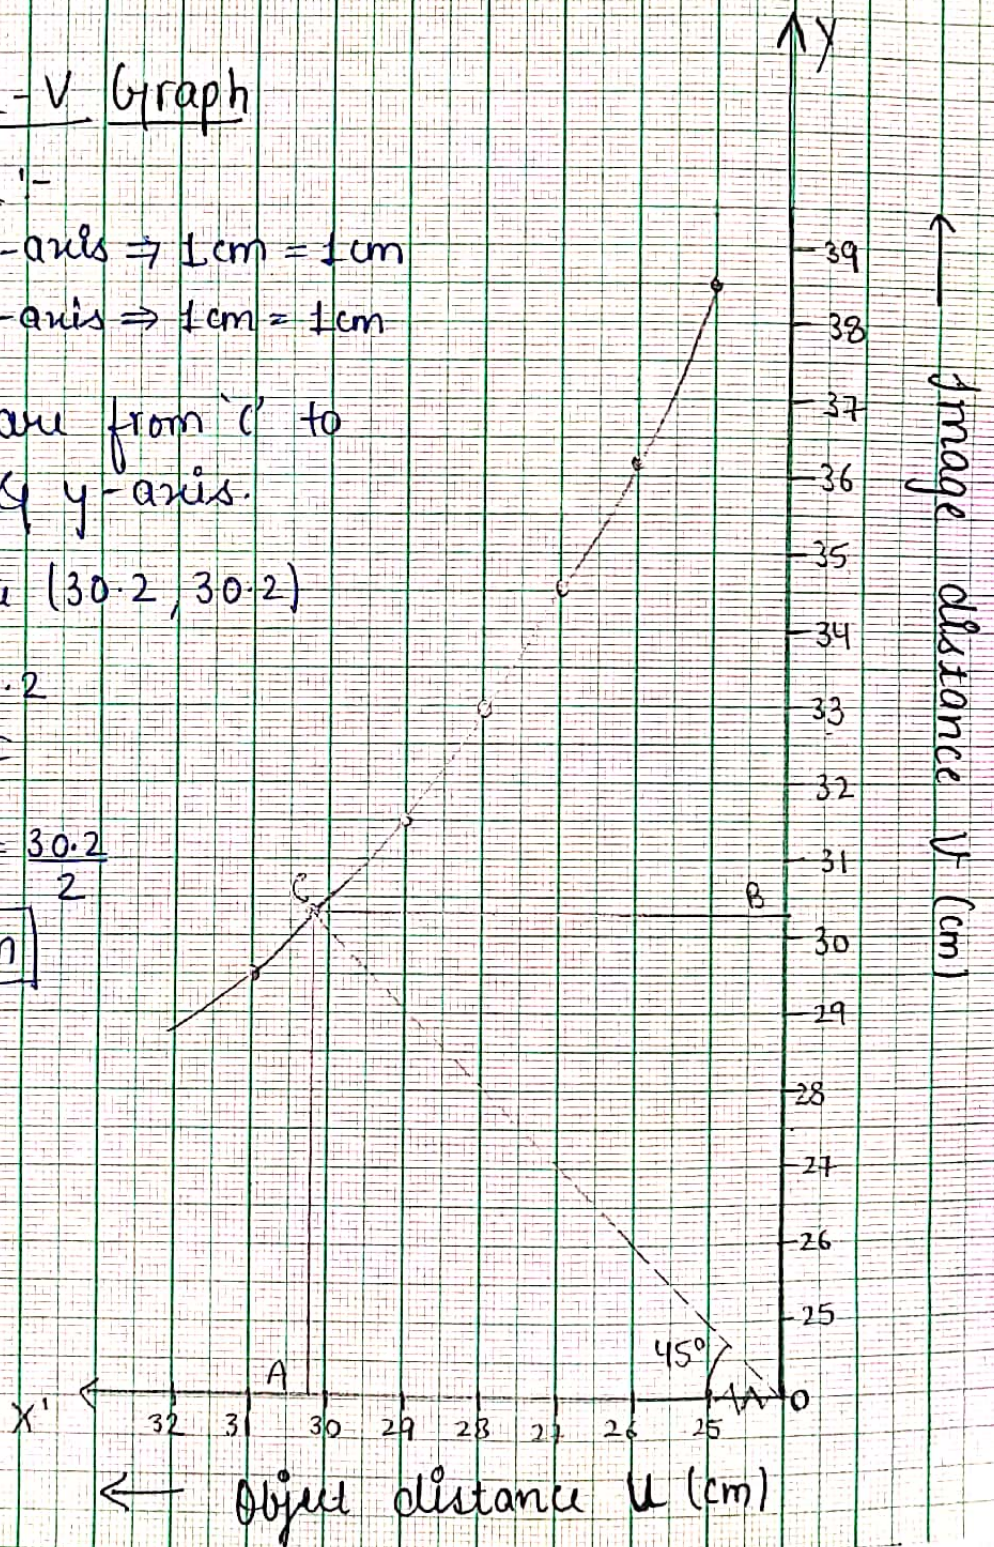 - V Graph
:-
-axis ⇒ 1 cm = 1 cm
-axis ⇒ 1 cm = 1 cm
are from 'C' to
y-axis.
(30.2, 30.2)
.2
= 30.2
2
Y
39
38
37
36
35
34
33
32
31
30
29
28
27
26
25
Image distance V (cm)
C
B
A
45°
O
X'
32 31 30 29 28 27 26 25
Object distance U (cm)